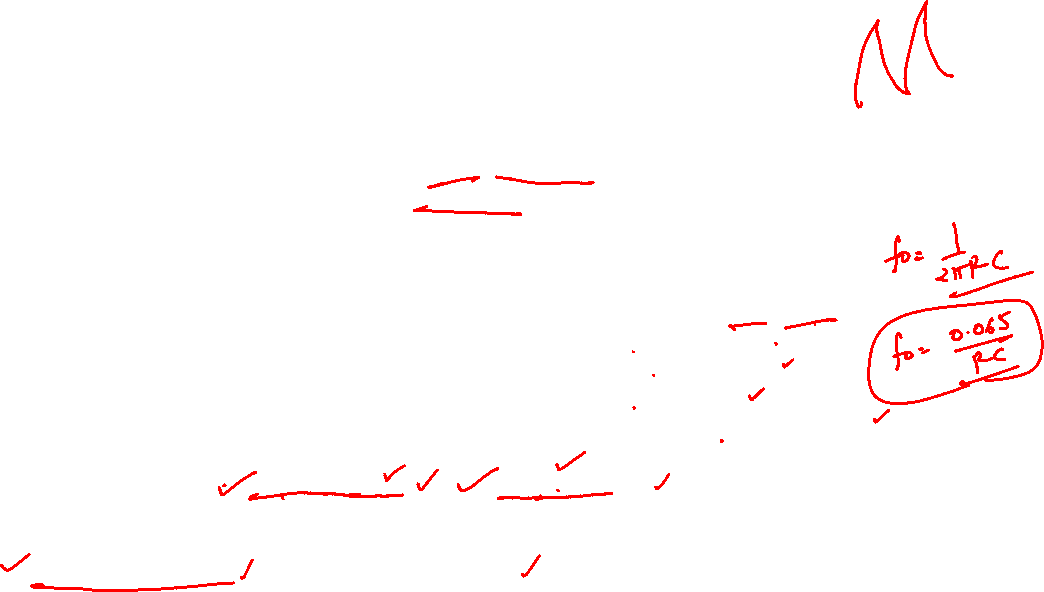 f0 = 1/2πRC
f0 = 0.065/RC